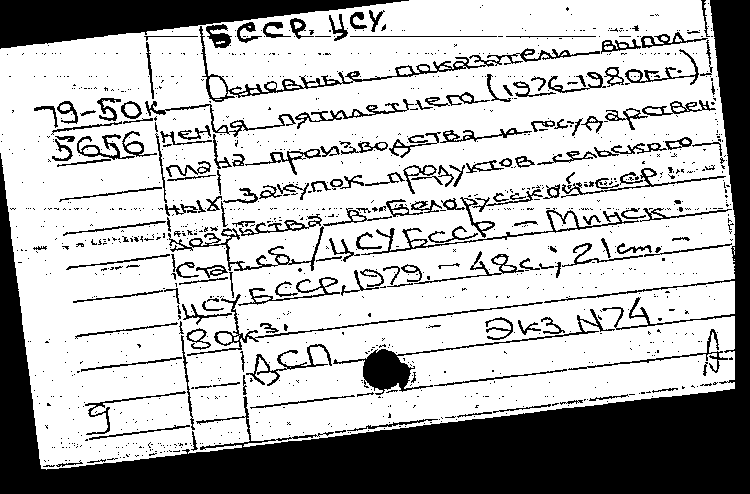 БССР. ЦСУ.
79-50к
5656
Основные показатели выпол-
нения пятилетнего (1976-1980гг.)
плана производства и государствен-
ных закупок продуктов сельского
хозяйства в Белорусской ССР:
Стат. сб. / ЦСУ БССР. - Минск:
ЦСУ БССР, 1979. - 48с.; 21см. -
80экз.
ДСП. Экз. N74.
9 А